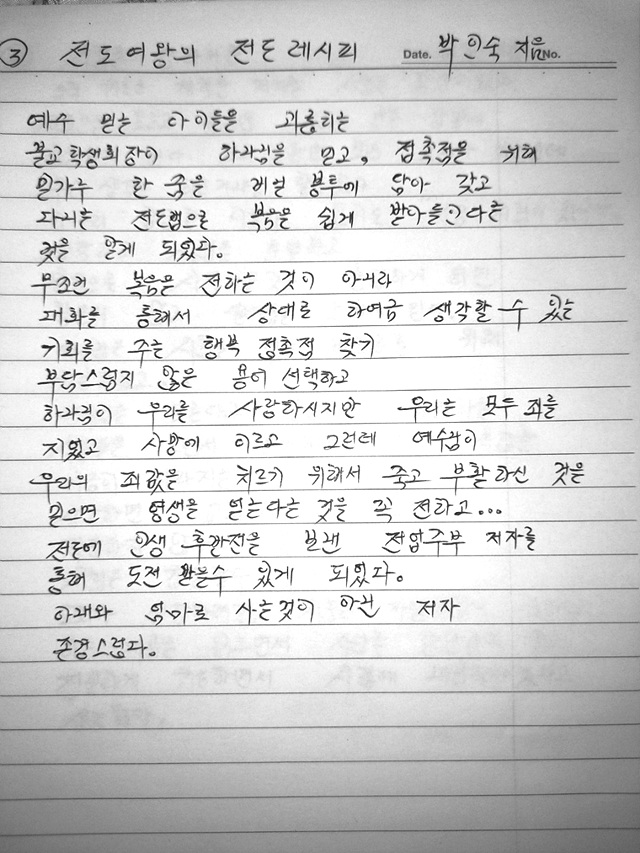 ③ 전도여왕의 전도레시피 Date. 박인숙 지음 No.
예수 믿는 아이들을 괴롭히는
불교학생회장이 하나님을 믿고, 접촉점을 위해
밀가루 한 줌을 비닐 봉투에 담아 갖고
다니는 전도법으로 복음을 쉽게 받아들인다는
것을 알게 되었다.
무조건 복음을 전하는 것이 아니라
대화를 통해서 상대로 하여금 생각할 수 있는
기회를 주는 행복 접촉점 찾기
부담스럽지 않은 용어 선택하고
하나님이 우리를 사랑하시지만 우리는 모두 죄를
지었고 사망에 이르고 그런데 예수님이
우리의 죄값을 치르기 위해서 죽고 부활하신 것을
믿으면 영생을 얻는다는 것을 꼭 전하고...
전도에 인생 후반전을 보낸 전업주부 저자를
통해 도전 받을수 있게 되었다.
아내와 엄마로 사는것이 아닌 저자
존경스럽다.